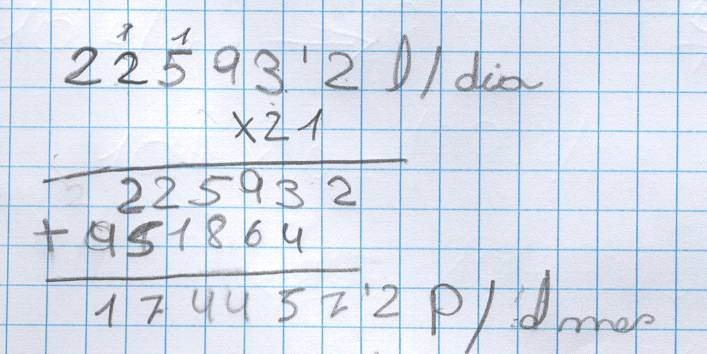 1 1
22593'2 l/dia
x21
225932
+ 451864
474457'2 l/mes